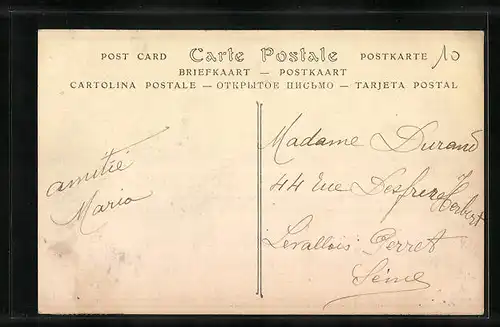 POST CARD Carte Postale POSTKARTE 10
BRIEFKAART — POSTKAART
CARTOLINA POSTALE — ОТКРЫТОЕ ПИСЬМО — TARJETA POSTAL
amitié
Maria
Madame Durand
44 rue
Levallois Perret
Seine